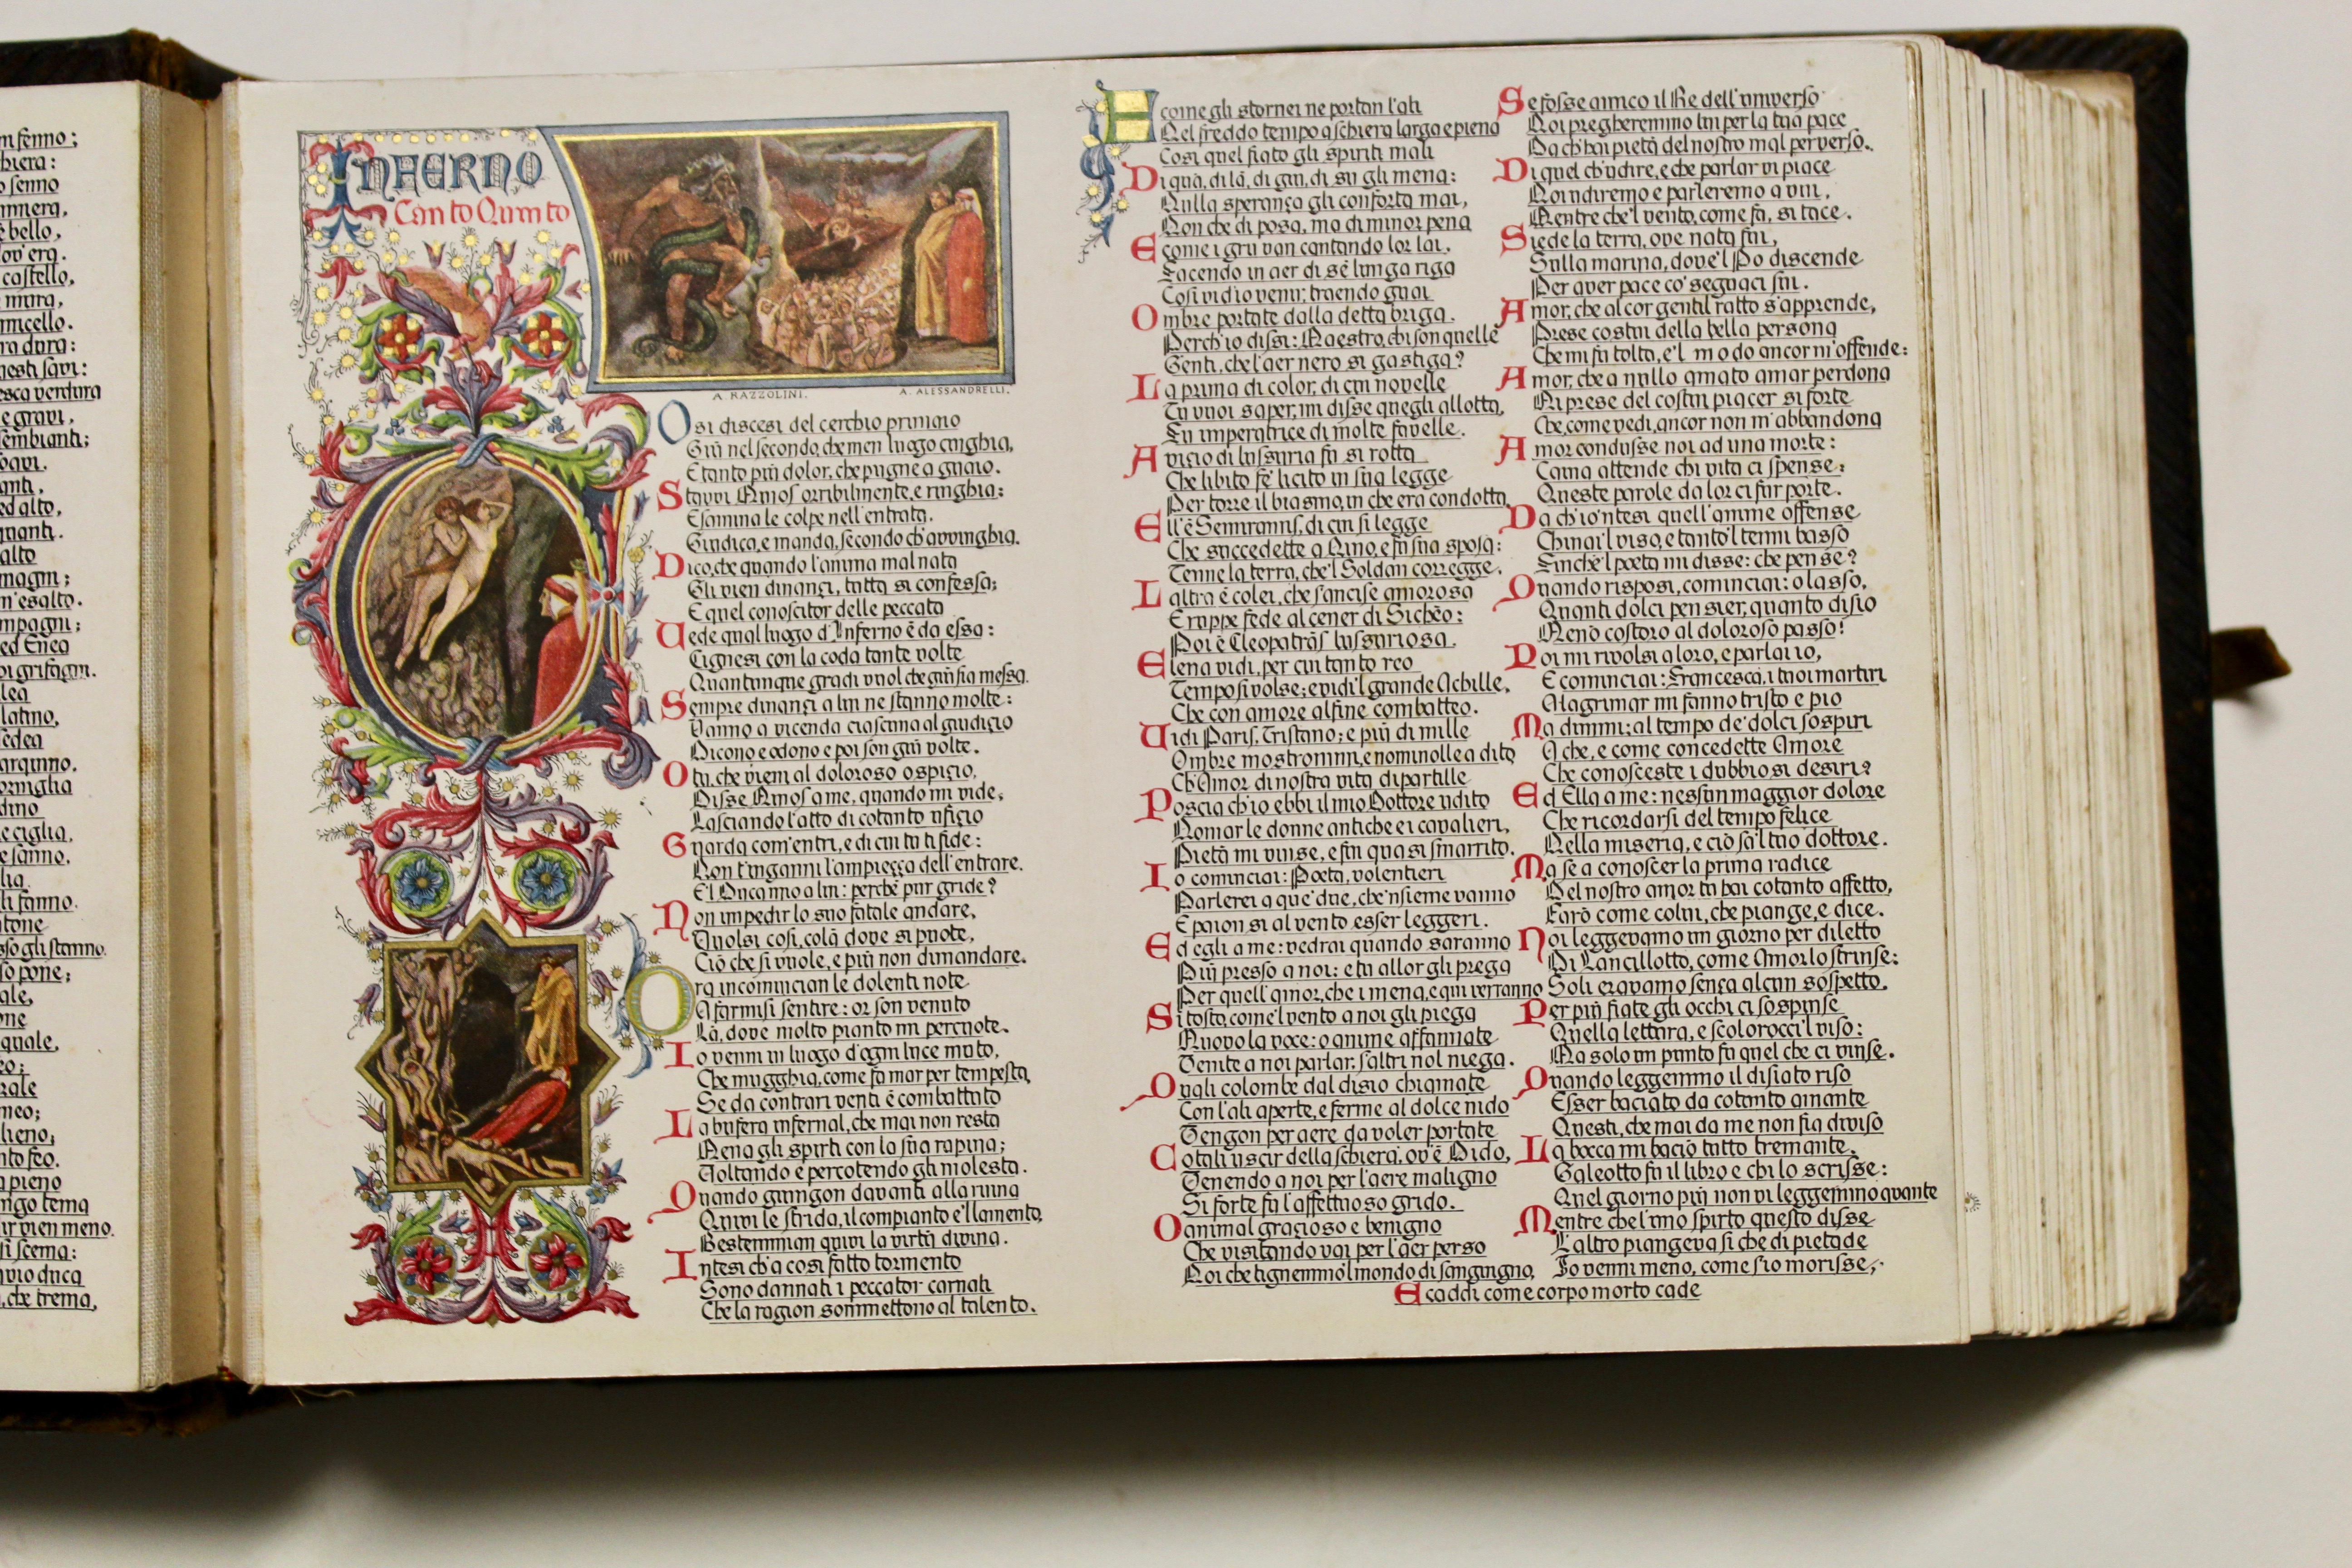 m senno;
hiera:
o senno
umiera,
è bello,
ov'era.
castello,
mura,
umicello.
ra dura:
uesti savi:
esca verdura
e gravi,
sembianti;
oavi.
anti,
ed alto,
quanti.
alto
magni;
m'esalto.
mpagni;
ed Enea
i grifagni.
lea
latino,
edea
arquino.
orniglia
dino
e ciglia,
e sanno,
lia
li fanno.
tone
sso gli stanno.
so pone;
ale,
one
quale,
eo;
rale
meo;
lieno,
nto feo.
a pieno
ngo tema
ir vien meno.
si scema:
avio duca
, che trema,
INFERNO
Canto Quinto
A. RAZZOLINI.
A. ALESSANDRELLI.
Osi discesi del cerchio primaio
Giù nel secondo, che men luogo cinghia,
E tanto più dolor, che pugne a guaio.
Stavvi Minos orribilmente, e ringhia:
Esamina le colpe nell'entrata.
Giudica, e manda, secondo ch'avvinghia.
Dico, che quando l'anima mal nata
Gli vien dinanzi, tutta si confessa;
E quel conoscitor delle peccata
Vede qual luogo d'Inferno è da essa:
Cignesi con la coda tante volte
Quantunque gradi vuol che giù sia messa.
Sempre dinanzi a lui ne stanno molte:
Vanno a vicenda ciascuna al giudizio
Dicono e odono e poi son giù volte.
O tu, che vieni al doloroso ospizio,
Disse Minos a me, quando mi vide,
Lasciando l'atto di cotanto ufizio
Guarda com'entri, e di cui tu ti fide:
Non t'inganni l'ampiezza dell'entrare.
E'l Duca mio a lui: perchè pur gride?
Non impedir lo suo fatale andare,
Vuolsi così, colà dove si puote,
Ciò che si vuole, e più non dimandare.
Ora incomincian le dolenti note
A farmisi sentire: or son venuto
Là, dove molto pianto mi percuote.
Io venni in luogo d'ogni luce muto,
Che mugghia, come fa mar per tempesta,
Se da contrari venti è combattuto
La bufera infernal, che mai non resta
Mena gli spirti con la sua rapina;
Voltando e percotendo gli molesta.
Quando giungon davanti alla ruina
Quivi le strida, il compianto e'l lamento,
Bestemmian quivi la virtù divina.
Intesi ch'a così fatto tormento
Sono dannati i peccator carnali
Che la ragion sommettono al talento.
E come gli stornei ne portan l'ali
Nel freddo tempo a schiera larga e piena
Così quel fiato gli spiriti mali
Di quà, di là, di giù, di su gli mena:
Nulla speranza gli conforta mai,
Non che di posa, ma di minor pena
E come i gru van cantando lor lai.
Facendo in aer di sè lunga riga
Così vid'io venir, traendo guai
Ombre portate dalla detta briga.
Perch'io dissi: Maestro, chi son quelle
Genti, che l'aer nero si gastiga?
La prima di color, di cui novelle
Tu vuoi saper, mi disse quegli allotta,
Fu imperatrice di molte favelle.
A vizio di lussuria fu si rotta
Che libito fe' licito in sua legge
Per torre il biasmo, in che era condotta,
Ell'è Semiramis, di cui si legge
Che succedette a Nino, e fu sua sposa:
Tenne la terra, che'l Soldan corregge.
L'altra è colei, che s'ancise amorosa
E ruppe fede al cener di Sichèo:
Poi è Cleopatràs lussuriosa.
Elena vidi, per cui tanto reo
Tempo si volse; e vidi'l grande Achille,
Che con amore al fine combatteo.
Vidi Paris, Tristano; e più di mille
Ombre mostrommi, e nominolle a dito
Ch'Amor di nostra vita dipartille
Poscia ch'io ebbi il mio Dottore udito
Nomar le donne antiche e i cavalieri,
Pietà mi vinse, e fui quasi smarrito.
Io cominciai: Poeta, volentieri
Parlerei a que' due, che'nsieme vanno
E paion si al vento esser leggeri.
Ed egli a me: vedrai quando saranno
Più presso a noi: e tu allor gli prega
Per quell'amor, che i mena, e qui verranno
Si tosto, come'l vento a noi gli piega
Muovo la voce: o anime affannate
Venite a noi parlar, s'altri nol niega.
Quali colombe dal disio chiamate
Con l'ali aperte, e ferme al dolce nido
Vengon per aere da voler portate
Cotali uscir della schiera, ov'è Dido,
Venendo a noi per l'aere maligno
Si forte fu l'affettuoso grido.
O animal grazioso e benigno
Che visitando vai per l'aer perso
Noi che tignemmo'l mondo di sanguigno,
Se fosse amico il Re dell'universo
Noi pregheremmo lui per la tua pace
Da ch'hai pietà del nostro mal perverso.
Di quel ch'udire, e che parlar vi piace
Noi udiremo e parleremo a vui,
Mentre che'l vento, come fa, si tace.
Siede la terra, ove nata fui,
Sulla marina, dove'l Po discende
Per aver pace co' seguaci sui.
Amor, che al cor gentil ratto s'apprende,
Prese costui della bella persona
Che mi fu tolta, e'l modo ancor m'offende:
Amor, che a nullo amato amar perdona
Mi prese del costui piacer si forte
Che, come vedi, ancor non m'abbandona
Amor condusse noi ad una morte:
Caina attende chi vita ci spense:
Queste parole da lor ci fur porte.
Da ch'io'ntesi quell'anime offense
Chinai'l viso, e tanto'l tenni basso
Finchè'l poeta mi disse: che pense?
Quando risposi, cominciai: o lasso,
Quanti dolci pensier, quanto disio
Menò costoro al doloroso passo!
Poi mi rivolsi a loro, e parlai io,
E cominciai: Francesca, i tuoi martiri
A lagrimar mi fanno tristo e pio
Ma dimmi: al tempo de' dolci sospiri
A che, e come concedette Amore
Che conosceste i dubbiosi desiri?
Ed Ella a me: nessun maggior dolore
Che ricordarsi del tempo felice
Nella miseria, e ciò sa'l tuo dottore.
Ma se a conoscer la prima radice
Del nostro amor tu hai cotanto affetto,
Farò come colui, che piange, e dice.
Noi leggevamo un giorno per diletto
Di Lancillotto, come Amor lo strinse:
Soli eravamo senza alcun sospetto.
Per più fiate gli occhi ci sospinse
Quella lettura, e scolorocci'l viso:
Ma solo un punto fu quel che ci vinse.
Quando leggemmo il disiato riso
Esser baciato da cotanto amante
Questi, che mai da me non fia diviso
La bocca mi baciò tutto tremante.
Galeotto fu il libro e chi lo scrisse:
Quel giorno più non vi leggemmo avante
Mentre che l'uno spirto questo disse
L'altro piangeva si che di pietade
Io venni meno, come s'io morisse,
E caddi come corpo morto cade